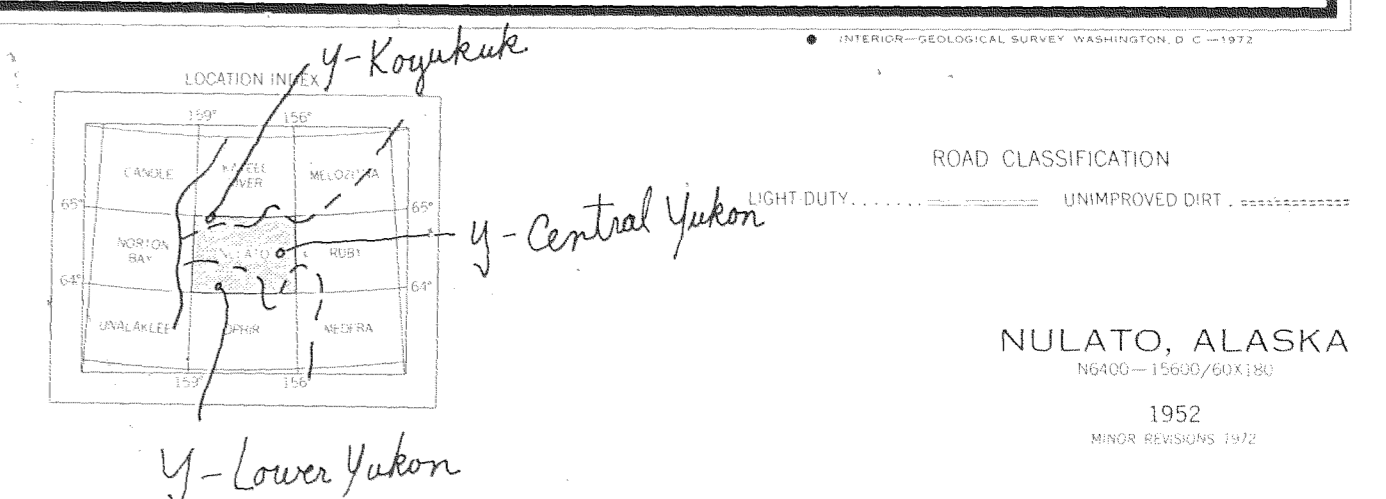 INTERIOR—GEOLOGICAL SURVEY WASHINGTON, D C—1972
y-Koyukuk
LOCATION INDEX
159° 156°
CANDLE KATEEL RIVER MELOZITNA
65° 65°
NORTON BAY NULATO RUBY
64° 64°
UNALAKLEET OPHIR MEDFRA
159° 156°
y-Central Yukon
y-Lower Yukon
ROAD CLASSIFICATION
LIGHT DUTY....... UNIMPROVED DIRT .
NULATO, ALASKA
N6400—15600/60X180
1952
MINOR REVISIONS 1972